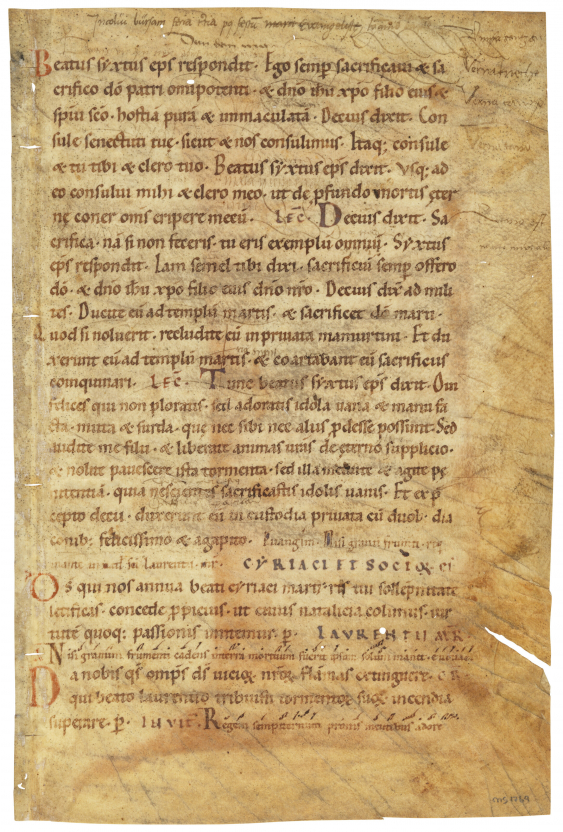 Beatus syxtus eps respondit. Ego semp sacrificaui & sa
crifico dō patri omipotenti. & dno ihu xpo filio eius &
spiui sco. hostiā purā & immaculatā. Decius dixit. Con
sule senectuti tuę. sicut & nos consulimus. Itaq; consule
& tu tibi & clero tuo. Beatus syxtus eps dixit. Vsq; ad
eo consului mihi & clero meo. ut de pfundo mortis eter
nę coner oms eripere mecū. LEC. Decius dixit. Sa
crifica. nā si non feceris. tu eris exemplū omniū. Syxtus
eps respondit. Iam semel tibi dixi. sacrificiū semp offero
dō. & dno ihu xpo filio eius dno nro. Decius dix ad mili
tes. Ducite eū ad templū martis. & sacrificet dō marti.
Quod si noluerit. recludite eū in priuata mamurtini. Et du
xerunt eū ad templū martis. & coartabant eū sacrificiis
coinquinari. LEC. Tunc beatus syxtus eps dixit. O in
felices qui non ploratis. sed adoratis idola uana & manu fa
cta. muta & surda. que nec sibi nec aliis pdesse possunt. Sed
audite me filii. & liberate animas uras de eterno supplicio.
& nolite pauescere ista tormenta. sed illa & agite pe
nitentiā. quia nescientes sacrificastis idolis uanis. Et ex p
cepto decii. duxerunt eū in custodia priuata cū duob. dia
conib; felicissimo & agapito. Euangm. Nisi granū frumti. req
in laurentii mr. CYRIACI ET SOCIOꝜ EI
Ds qui nos annua beati cyriaci martiris tui sollepnitate
letificas. concede ppicius. ut cuius natalicia colimus. uir
tutē quoq; passionis imitemur. p. LAURENTII MR.
Nisi granum frumenti cadens in terra mortuum fuerit ipsum solum manet.
Da nobis qs omps ds uicioꝝ nroꝝ flāmas extinguere.
qui beato laurentio tribuisti tormentoꝝ suoꝝ incendia
superare. p. INVIT. Regem sempiternum pronis mentibus adore
MS 1764